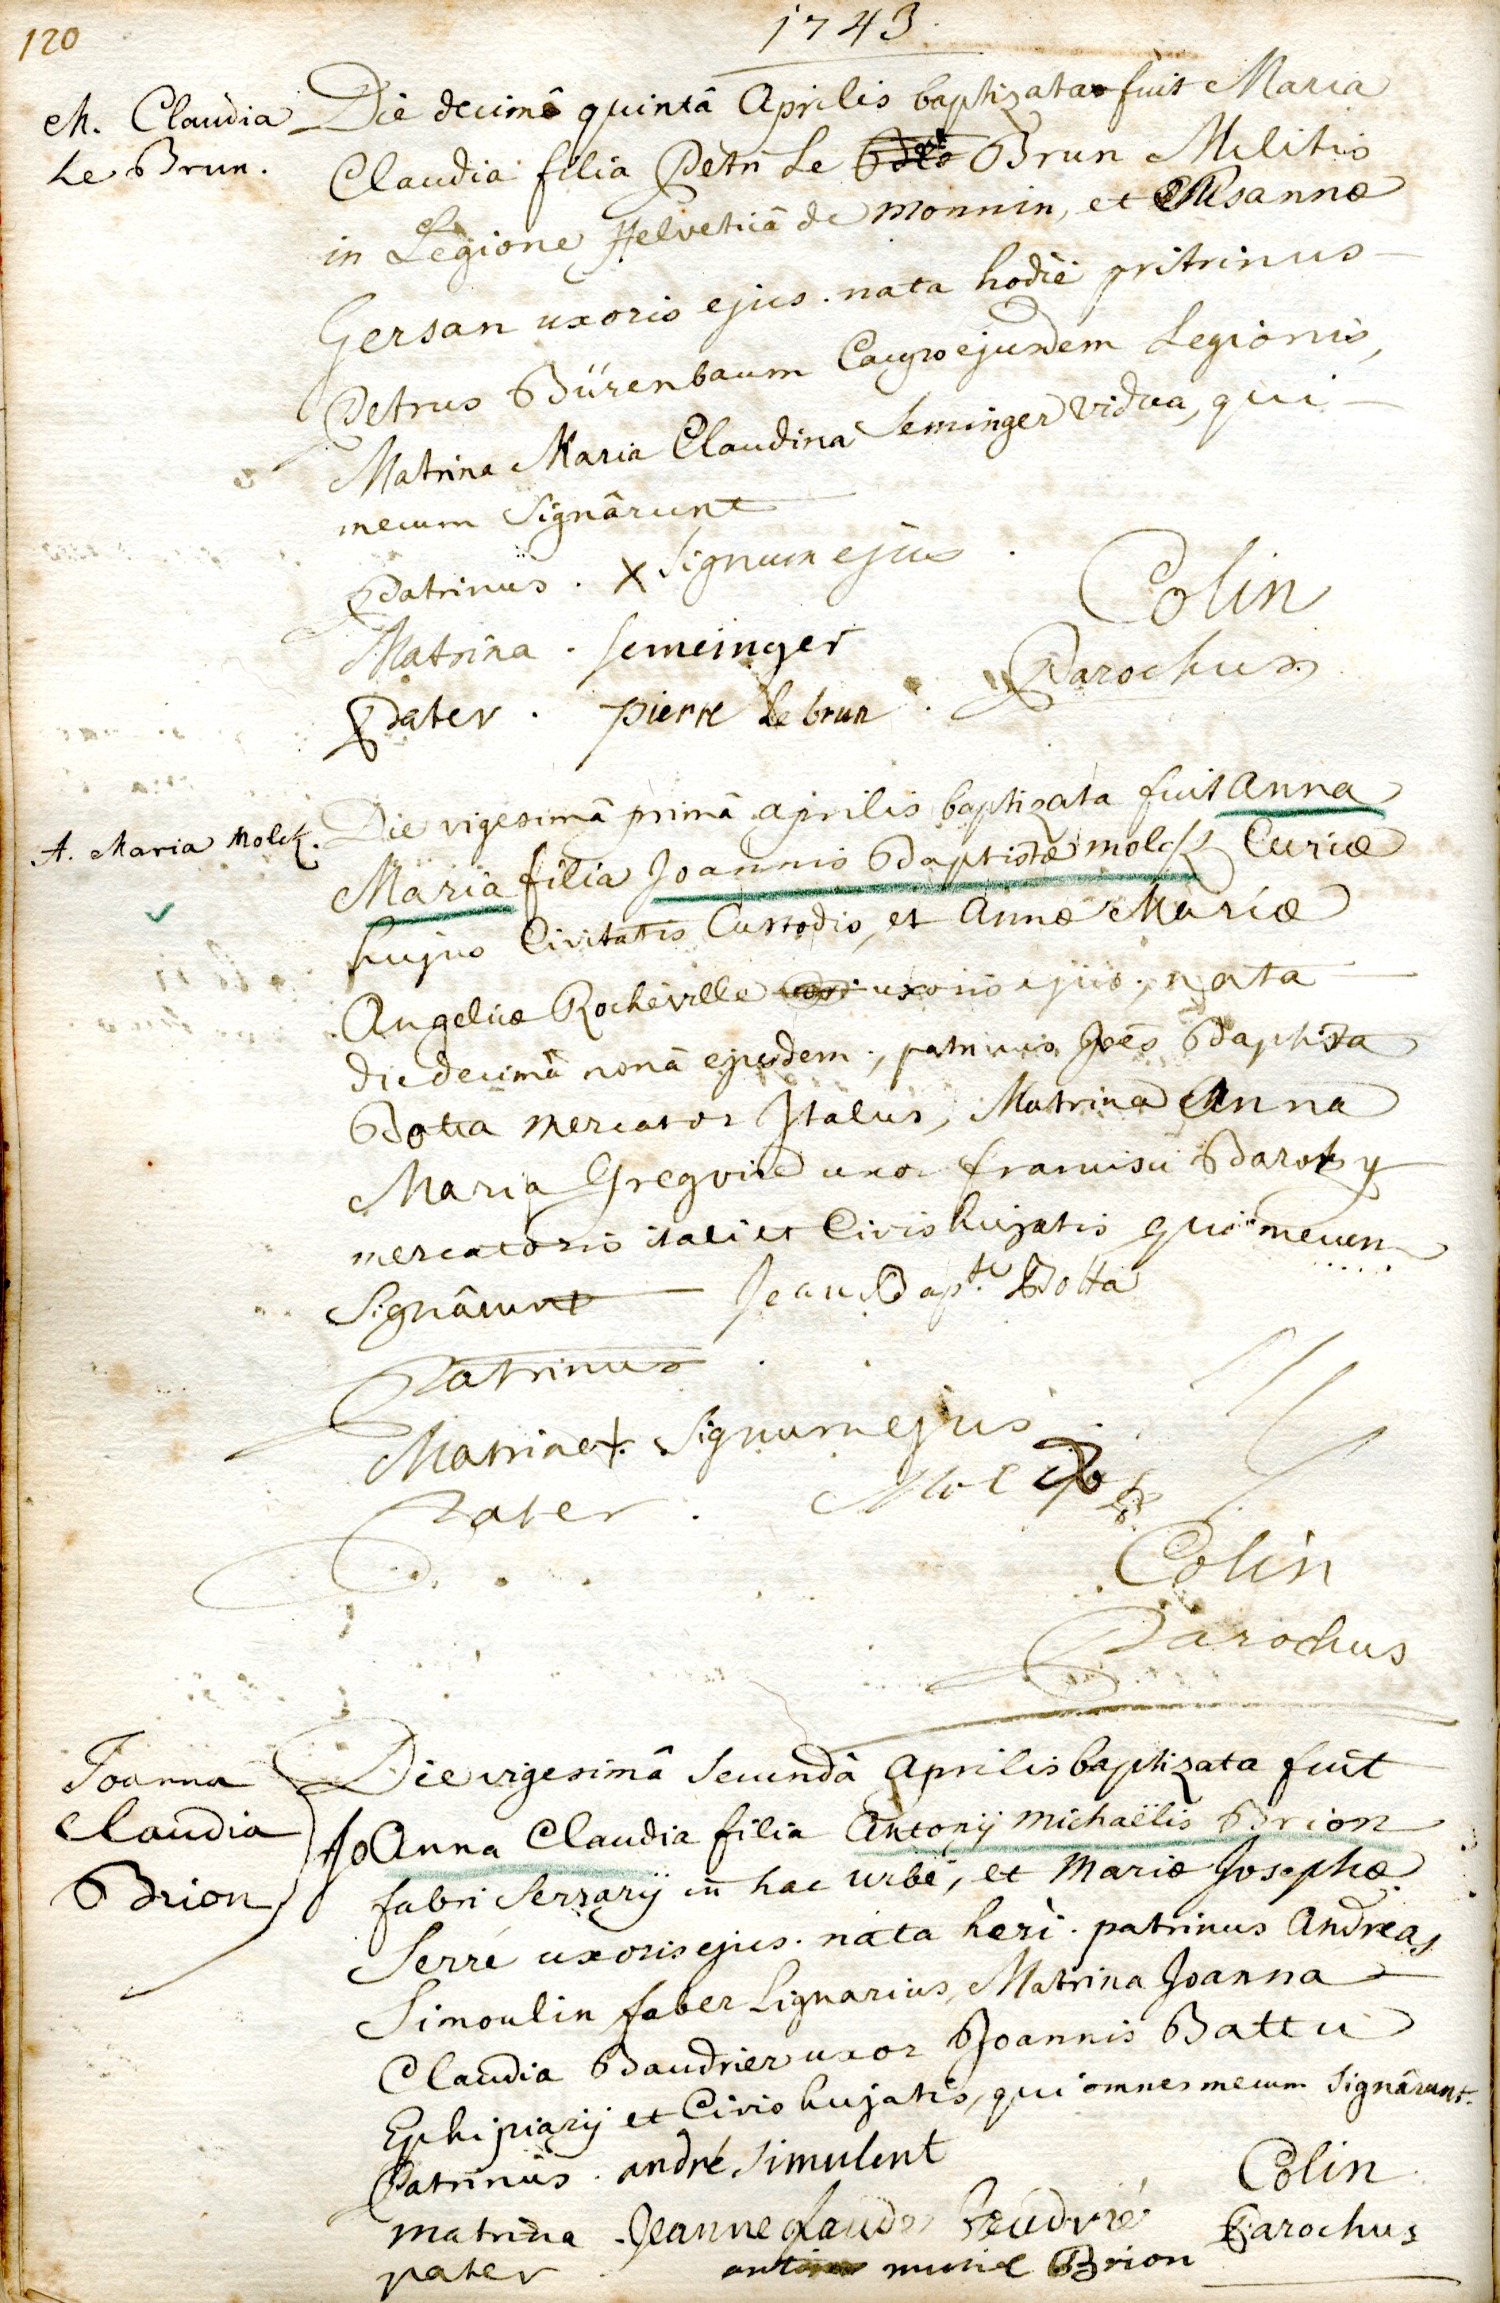 120
1743.
M. Claudia
Le Brun.
Die decimâ quintâ Aprilis baptizata fuit Maria
Claudia filia Petri Le Brun Militis
in Legione Helveticâ de Monnin, et Susannæ
Gersan uxoris ejus. nata hodiè pritrinus
Petrus Bürenbaum ejusdem Legionis,
Matrina Maria Claudina Seminger vidua, qui
mecum Signârunt
Patrinus . X Signum ejus .
Matrina . semeinger
Pater . pierre le brun .
Colin
Parochus
A. Maria Molck.
Die vigesimâ primâ aprilis baptizata fuit Anna
Maria filia Joannis Baptistæ molck Curiæ
hujus Civitatis Custodis, et Annæ Mariæ
Angelicæ Rocheville uxoris ejus ; nata
die decimâ nonâ ejusdem ; patrinus Joes Baptista
Botta Mercator Italus, Matrina Anna
Maria Gregoire uxor francisci Baroky
mercatoris itali et Civis hujatis qui mecum
Signârunt Jean Bapt.te Botta
Patrinus .
Matrina +. Signum ejus .
Pater .
Colin
Parochus
Joanna
Claudia
Brion
Die vigesimâ Secundâ Aprilis baptizata fuit
JoAnna Claudia filia Antonij Michaëlis Brion
fabri Serrarij in hac urbe, et Mariæ Josephæ
Serré uxoris ejus. nata heri. patrinus Andreas
Simoulin faber Lignarius, Matrina Joanna
Claudia Baudrier uxor Joannis Battu
Ephipiarij et Civis hujatis, qui omnes mecum Signârunt.
Patrinus . andré Simulent
Matrina . Jeanne Beudrié
pater Brion
Colin
Parochus